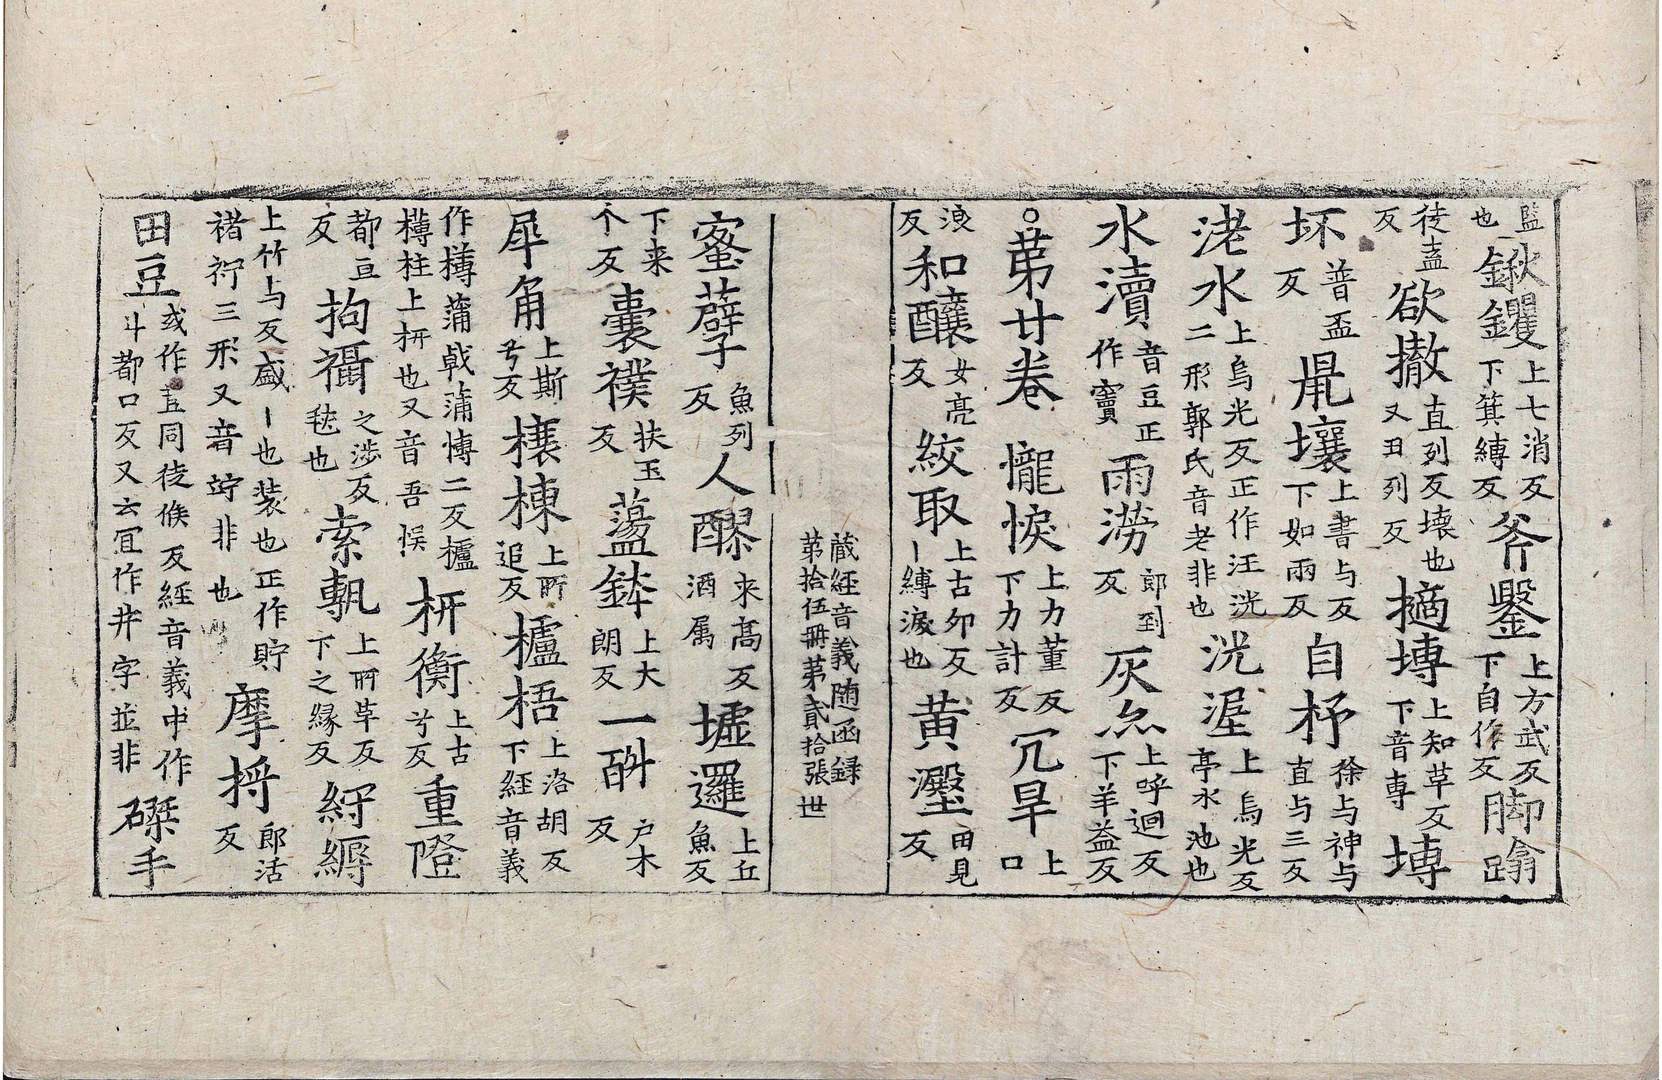 監也鍬钁上七消反下箕縛反斧鑿上方武反下自作反脚蹹
徒盍反欲撤直列反壊也又丑列反摘塼上知草反下音専塼
坏普盃反凥壤上書与反下如兩反自杼徐与神与直与三反
洸水上烏光反正作汪洸二形郭氏音老非也洸渥上烏光反亭水池也
水瀆音豆正作竇雨澇郎到反灰㶡上呼迴反下羊益反
○苐廿卷 儱悷上力董反下力計反冗旱上口
浪反和釀女亮反絞取上古卯反丨縛淚也黄㶔田見反
蔵經音義随函録
苐拾伍冊苐貳拾張世
蜜蘖子魚列反人醪来髙反酒属墟邏上丘魚反
下来个反囊襆扶玉反蘯鉢上大朗反一㪷户木反
犀角上斯兮反榱棟上所追反櫨梧上洛胡反下經音義
作欂蒲戟蒲慱二反櫨欂柱上枅也又音吾悮枅衡上古兮反重隥
都亘反拘襵之渉反㲲也索䩭上所草反下之縁反紵縟
上竹与反盛丨也装也正作貯褚䘢三形又音竚非也摩捋郎活反
田豆或作荳同徒候反經音義中作斗都口反又云冝作井字並非磔手